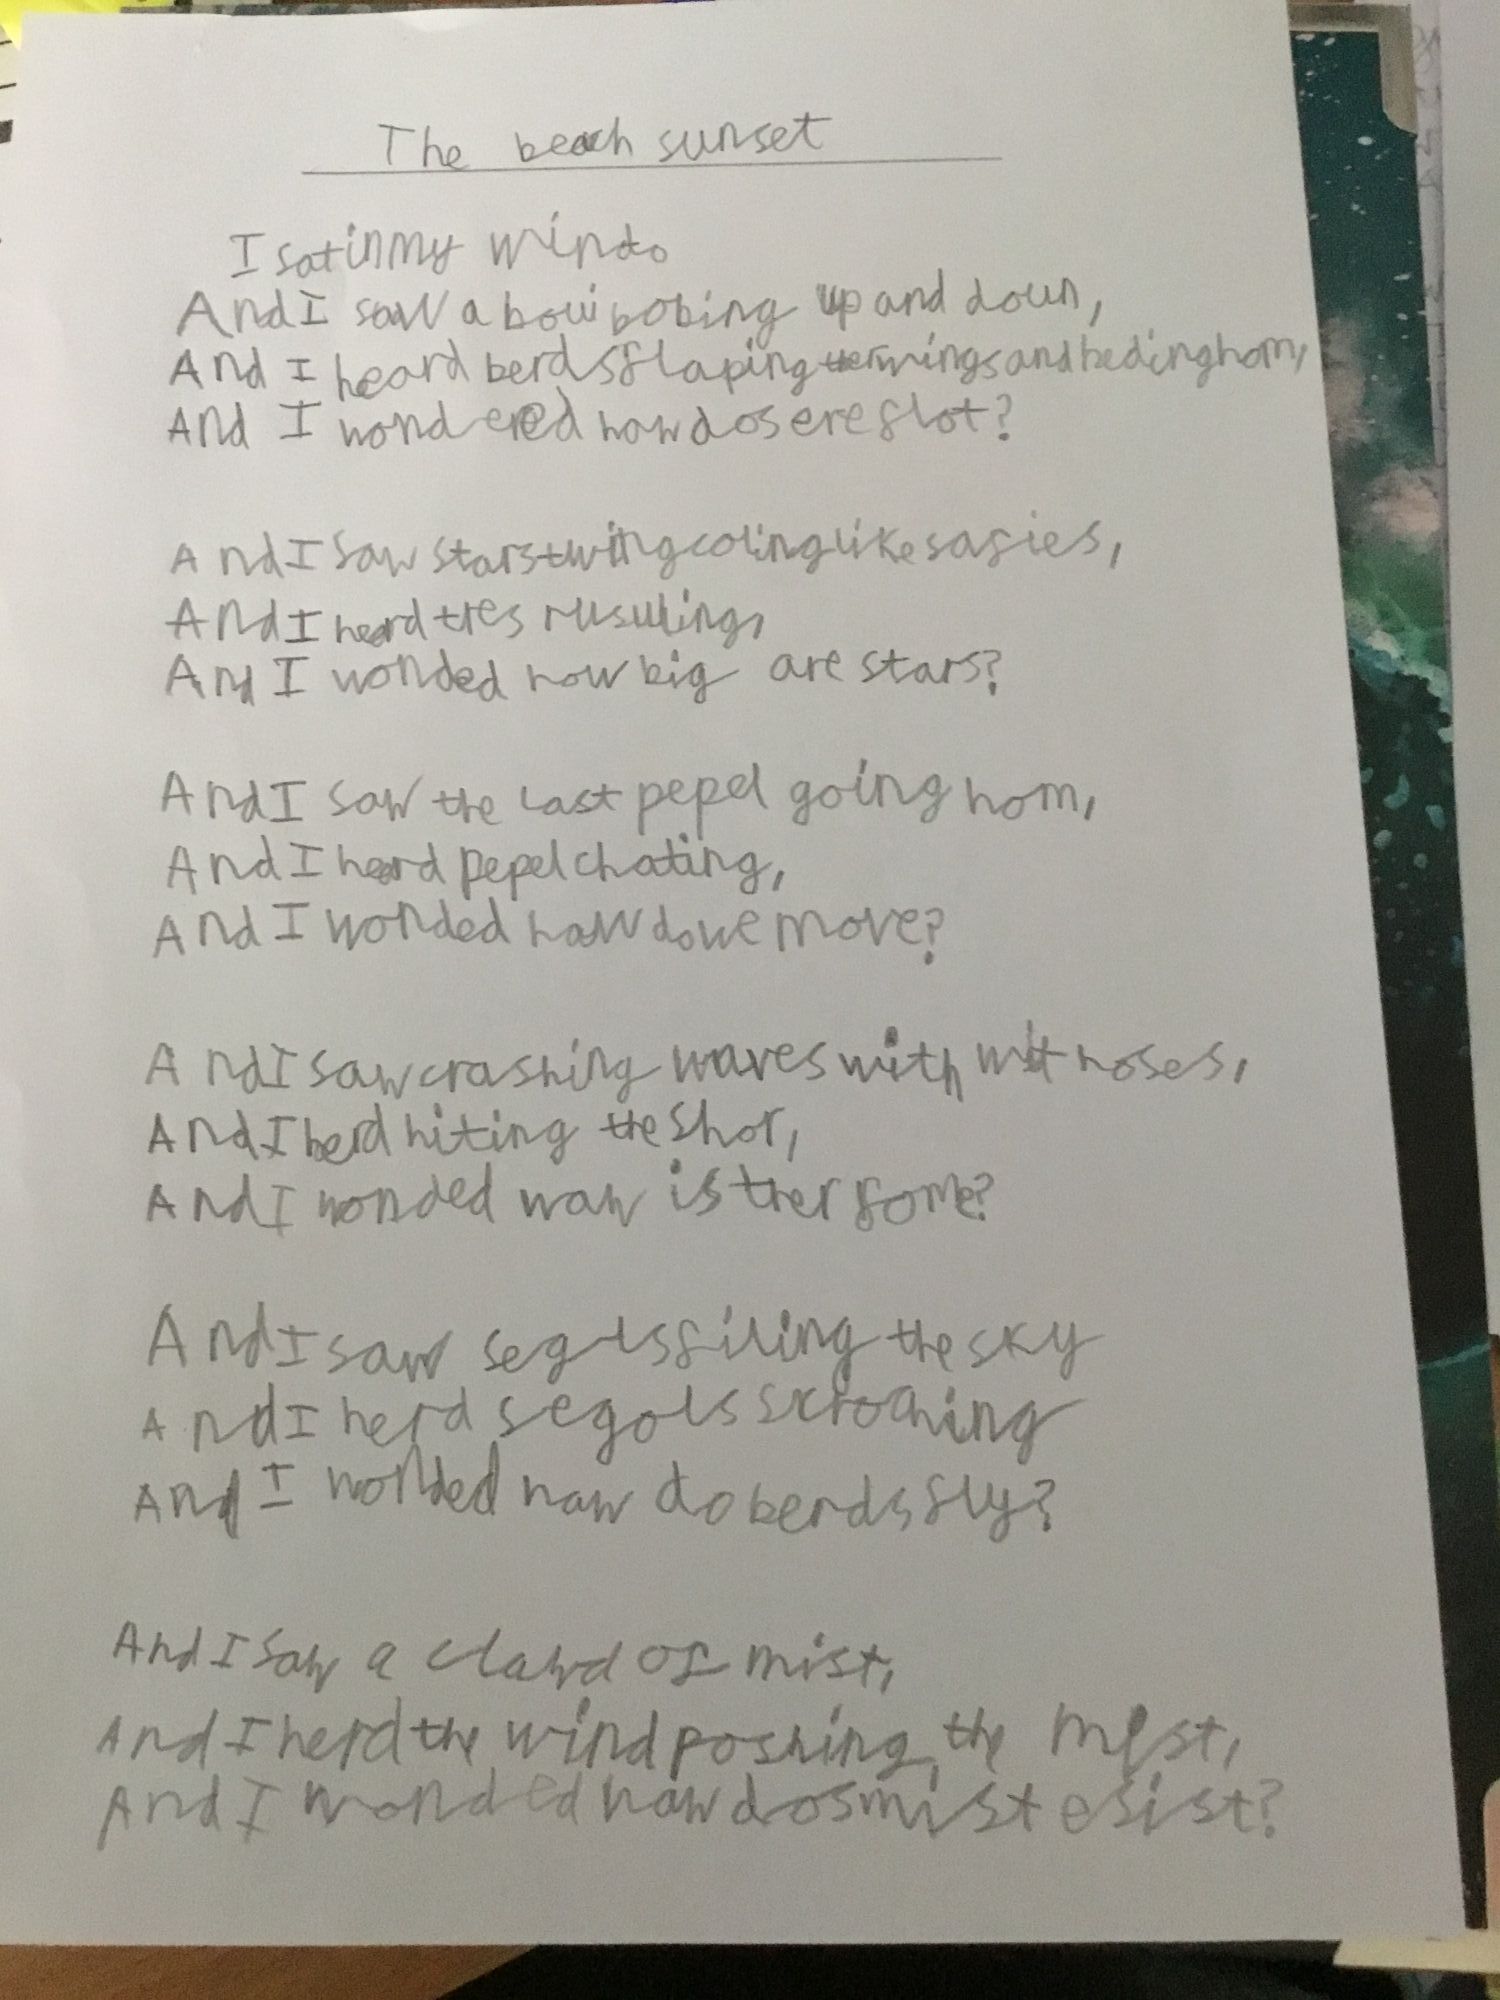 The beach sunset
I sat in my windo
And I saw a bowi bobing up and doun,
And I heard berds flaping ther wings and heding hom,
And I wondered how dos ere flot?
And I saw stars twingcoling like safies,
And I heard tres rusuling,
And I wonded how big are stars?
And I saw the last pepel going hom,
And I heard pepel chating,
And I wonded haw do we move?
And I saw crashing waves with wit hoses,
And I herd hiting the shor,
And I wonded waw is ther fome?
And I saw segls filing the sky
And I herd segols scroching
And I wonded haw do berds fly?
And I saw a clawd of mist,
And I herd the wind poshing the mist,
And I wonded haw dos mist esist?